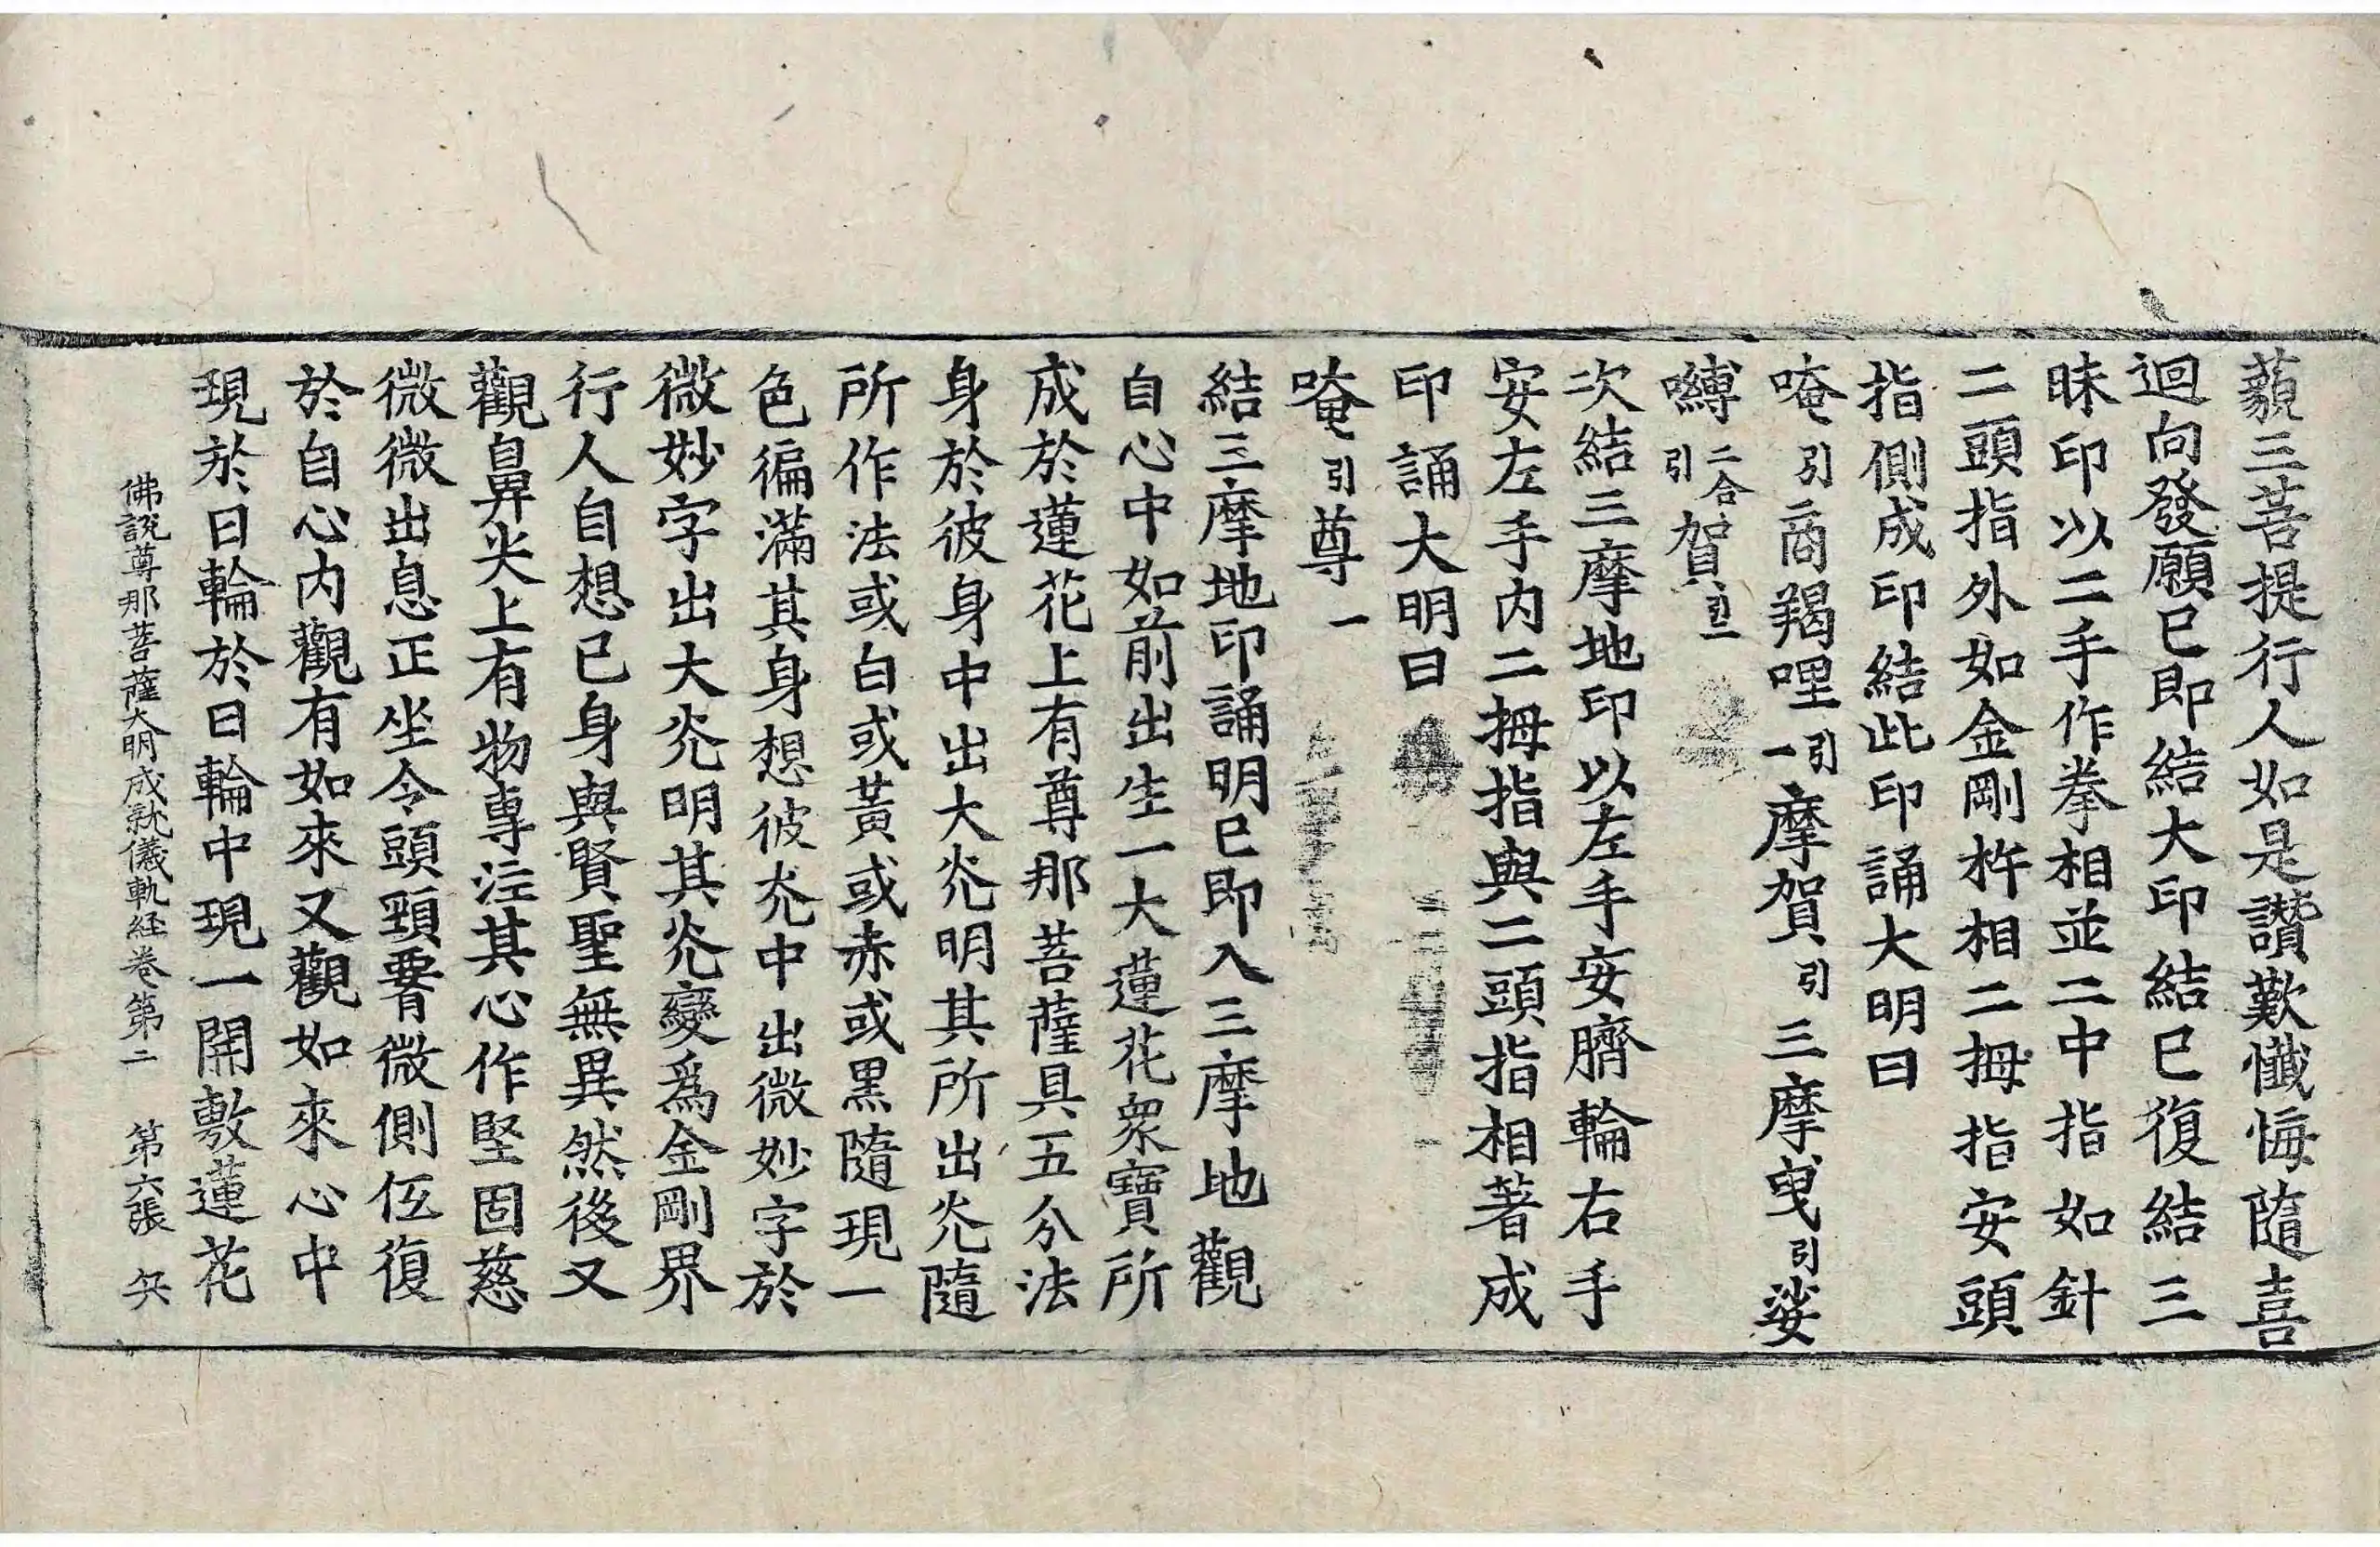 藐三菩提行人如是讚歎懺悔隨喜
迴向發願已即結大印結已復結三
昧印以二手作拳相並二中指如針
二頭指外如金剛杵相二拇指安頭
指側成印結此印誦大明曰
唵引商羯哩引一摩賀引三摩曳引娑
嚩二合引賀引二
次結三摩地印以左手安臍輪右手
安左手內二拇指與二頭指相著成
印誦大明曰
唵引尊一
結三摩地印誦明已即入三摩地觀
自心中如前出生一大蓮花眾寶所
成於蓮花上有尊那菩薩具五分法
身於彼身中出大灮明其所出灮隨
所作法或白或黃或赤或黑隨現一
色徧滿其身想彼灮中出微妙字於
微妙字出大灮明其灮變爲金剛界
行人自想已身與賢聖無異然後又
觀鼻尖上有物專注其心作堅固慈
微微出息正坐令頭頸膂微側伍復
於自心內觀有如來又觀如來心中
現於日輪於日輪中現一開敷蓮花
佛說尊那菩薩大明成就儀軌経卷第二 第六張